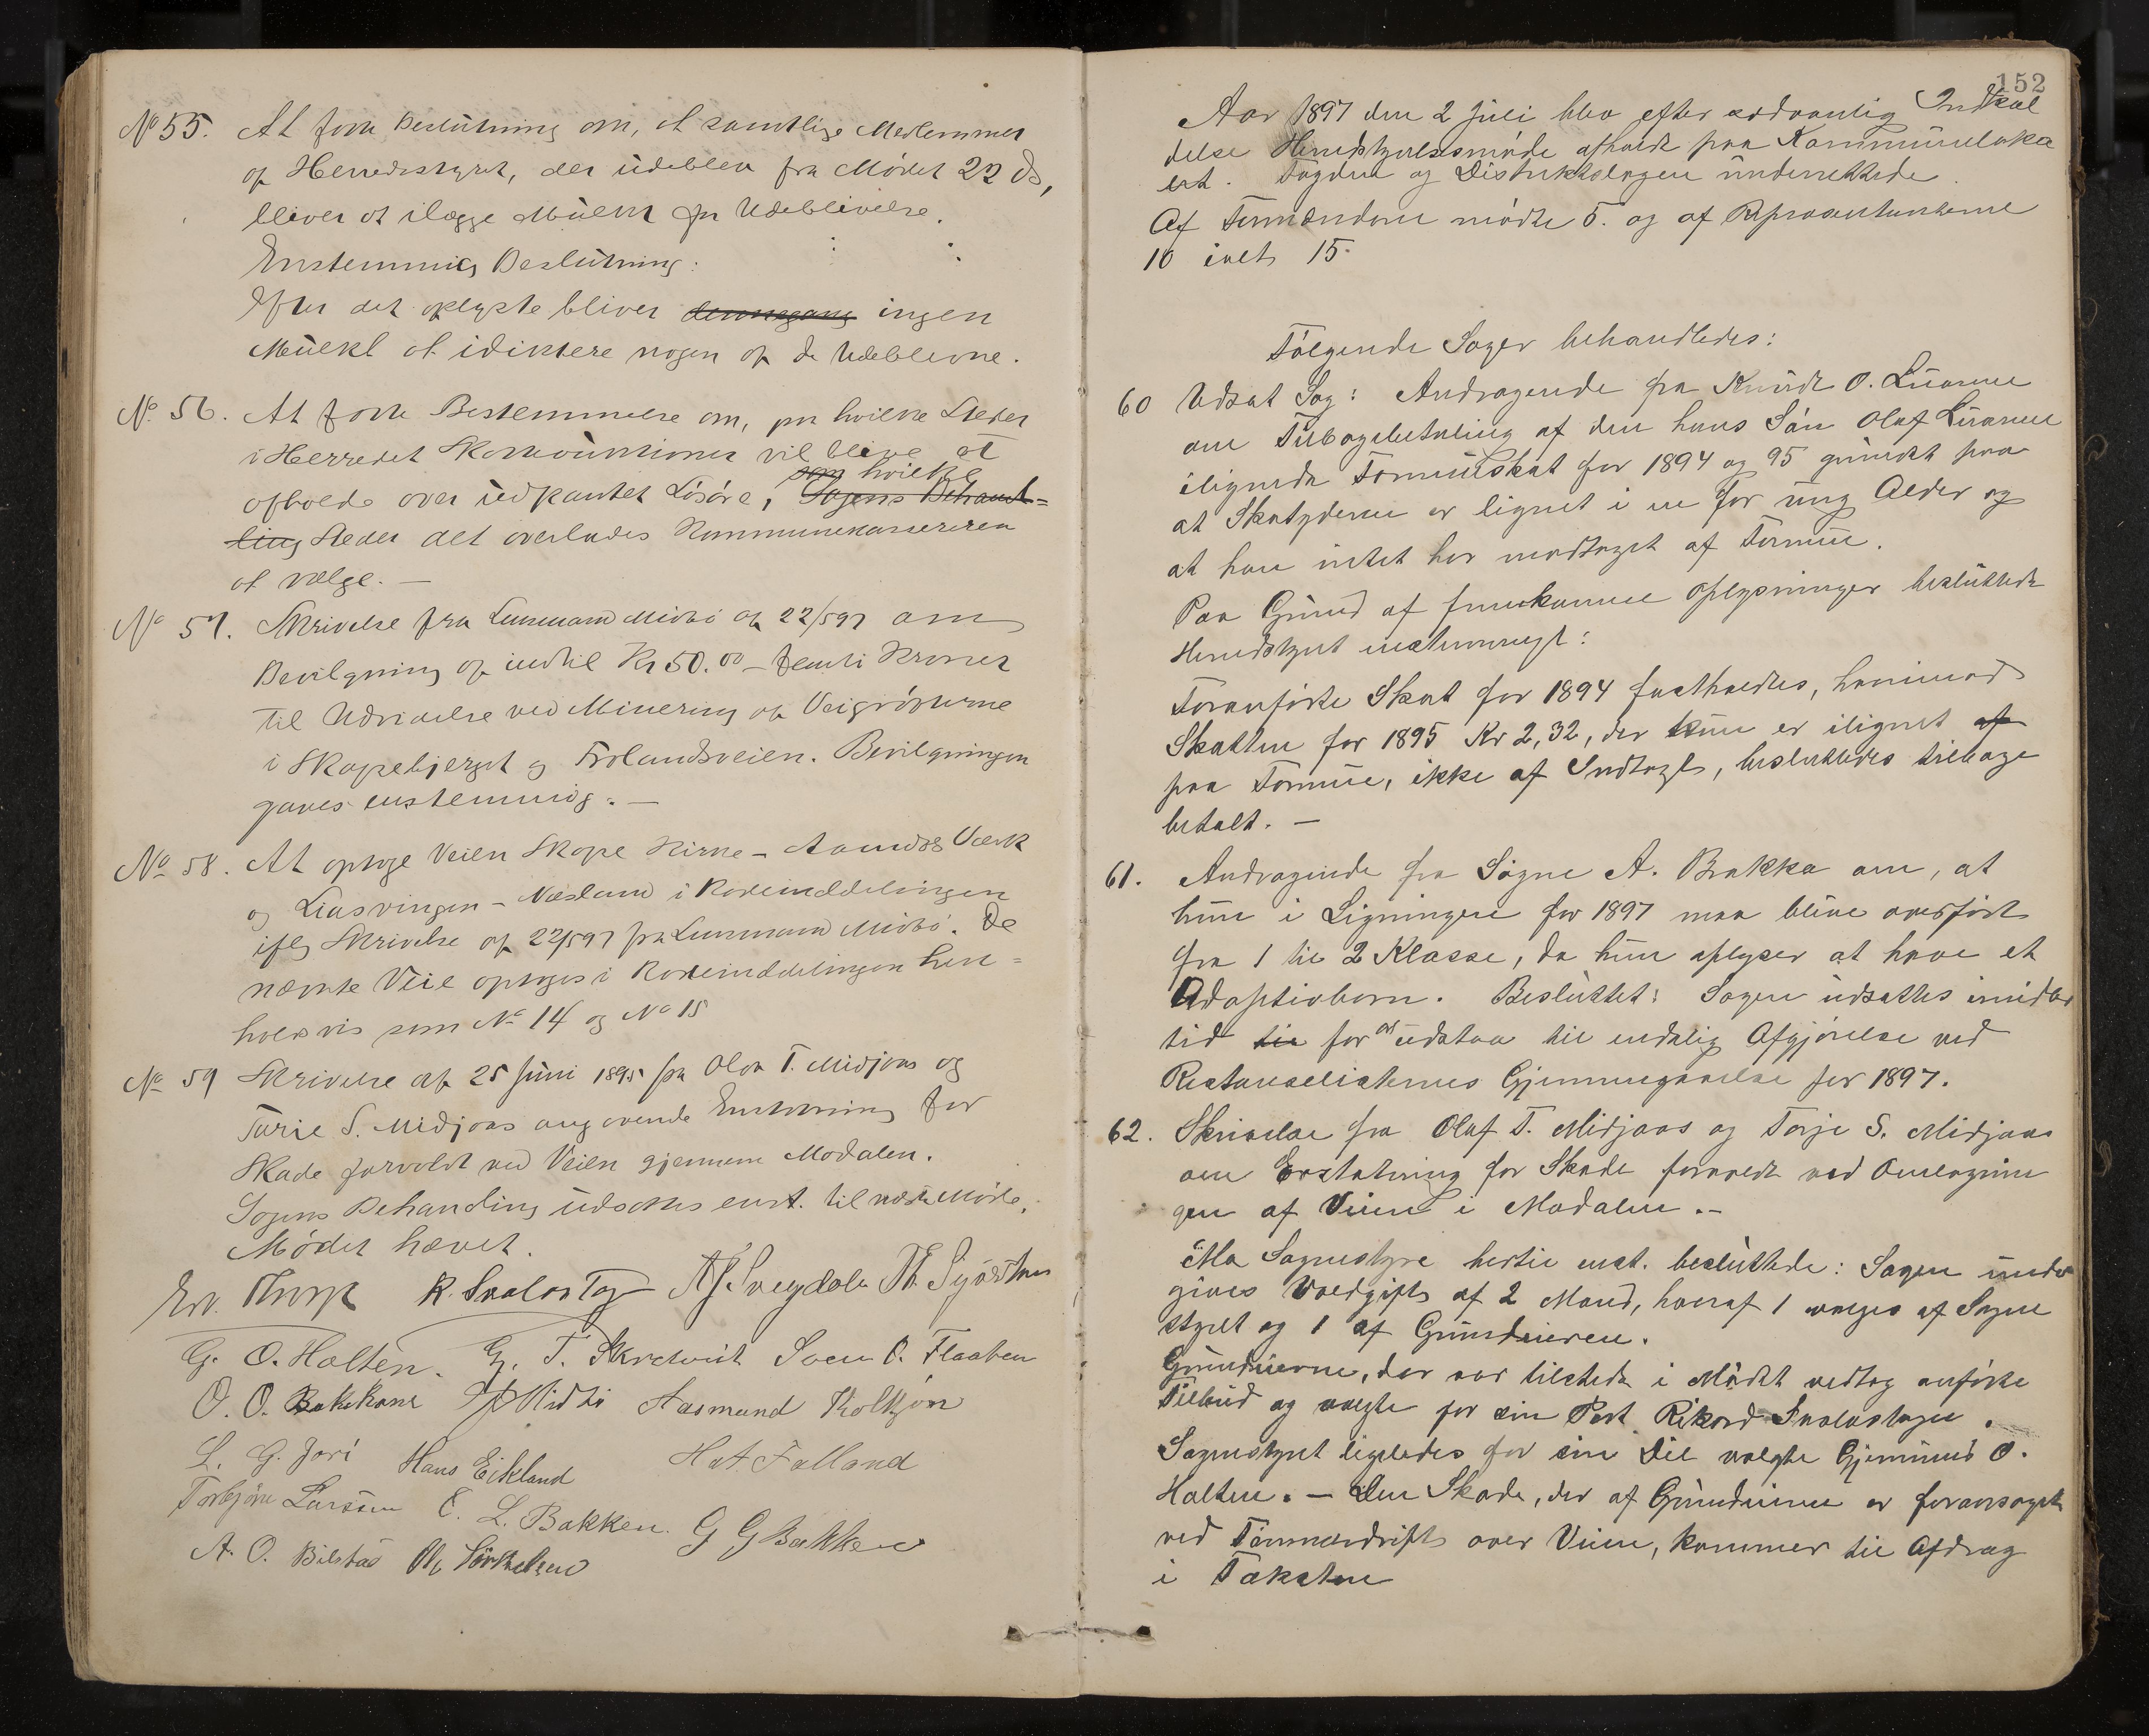 No 55. At fatte Beslutning om, at samtlige Medlemmer
af Herredsstyret, der udeblev fra Mødet 22 ds,
bliver at ilægge Mulkt for Udeblivelse.
Enstemmig Beslutning:
Efter det oplyste bliver dennegang ingen
Mulkt at idiktere nogen af de Udeblevne.
No. 56. At fatte Bestemmelse om, paa hvilke Steder
i Herredet Skatteauktioner vil blive at
som hvilke
afholde over udpantet Løsøre, Sagens Behand=
ling Steder det overlades Kommunekassereren
at vælge. —
No 57. Skrivelse fra Lensmand Midbø af 22/5 97 om
Bevilgning af indtil Kr 50.00 — femti Kroner
til Udvidelse ved Minering af Veigrøfterne
i Skapebjerget og Frolandsveien. Bevilgningen
gaves enstemmig. —
No 58. At optage Veien Skape Kirke — Aamdals Værk
og Liasvingen — Næsland i Rodeinddelingen
iflg Skrivelse af 22/5 97 fra Lensmand Midbø. De
nævnte Veie optages i Rodeinddelingen hen=
holdsvis som No 14 og No 15
No 59 Skrivelse af 25 Juni 1895 fra Olav T. Midjaas og
Torje S. Midjaas angaaende Erstatning for
Skade forvoldt ved Veien gjennem Modalen.
Sagens Behandling udsattes enst. til næste Møde.
Mødet hævet.
R. Svalastog
G. O. Holten. G. T. Sven O. Flaaten
O. O. Bakkane Midbø Aasmund Kolkjøn
L. G. Jori Hans Eikland H. A. Falland
Torbjørn Larsson E. L. Bakken. G G Bakken
A. O. Bilstad
152
Aar 1897 den 2 Juli blev efter sædvanlig Indkal
delse Herredstyrelsesmøde afholdt paa Kommuneloka
let. Fogden og Distriktslægen underrettede
Af Formændene mødte 5. og af Repræsentanterne
10 ialt 15.
Følgende Sager behandledes:
60 Udsat Sag: Andragende fra Knudt O.
om Tilbagebetaling af den hans Søn Olaf
ilignede Formueskat for 1894 og 95 grundet paa
at Skatyderen er lignet i en for ung Alder og
at han intet har modtaget af Formue.
Paa Grund af fremkomne Oplysninger besluttede
Herredstyret enstemmigt:
Foranførte Skat for 1894 fastholdes, hvorimod
Skatten for 1895 Kr 2,32, der kun er ilignet af
paa Formue, ikke af Indtægt, besluttedes tilbage
betalt. —
61. Andragende fra Signe A. Brakka om, at
hun i Ligningen for 1897 maa blive overført
fra 1 til 2 Klasse, da hun oplyser at have et
Adoptivbarn. Besluttet: Sagen udsattes imidler
tid til for at udstaa til endelig Afgjørelse ved
Restanselisternes Gjennemgaaelse for 1897.
62. Skrivelse fra Olaf T. Midjaas og Torje S. Midjaas
om Erstatning for Skade forvoldt ved Omlægnin
gen af Veien i Modalen. —
Mo Sognestyre hertil enst. besluttede: Sagen under
gives Voldgift af 2 Mænd, hvoraf 1 vælges af Sogne
styret og 1 af Grundeieren.
Grundeierne, der var tilstede i Mødet vedtog anførte
Tilbud og valgte for sin Part Rikard Svalastogen.
Sognestyret ligeledes for sin Del valgte Gjermund O.
Holten. — Den Skade, der af Grundeierne er foraarsaget
ved Tømmerdrift over Veien, kommer til Afdrag
i Taksten